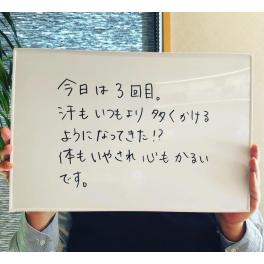 今日は3回目。
汗もいつもより多くかける
ようになってきた!?
体もいやされ心もかるい
です。